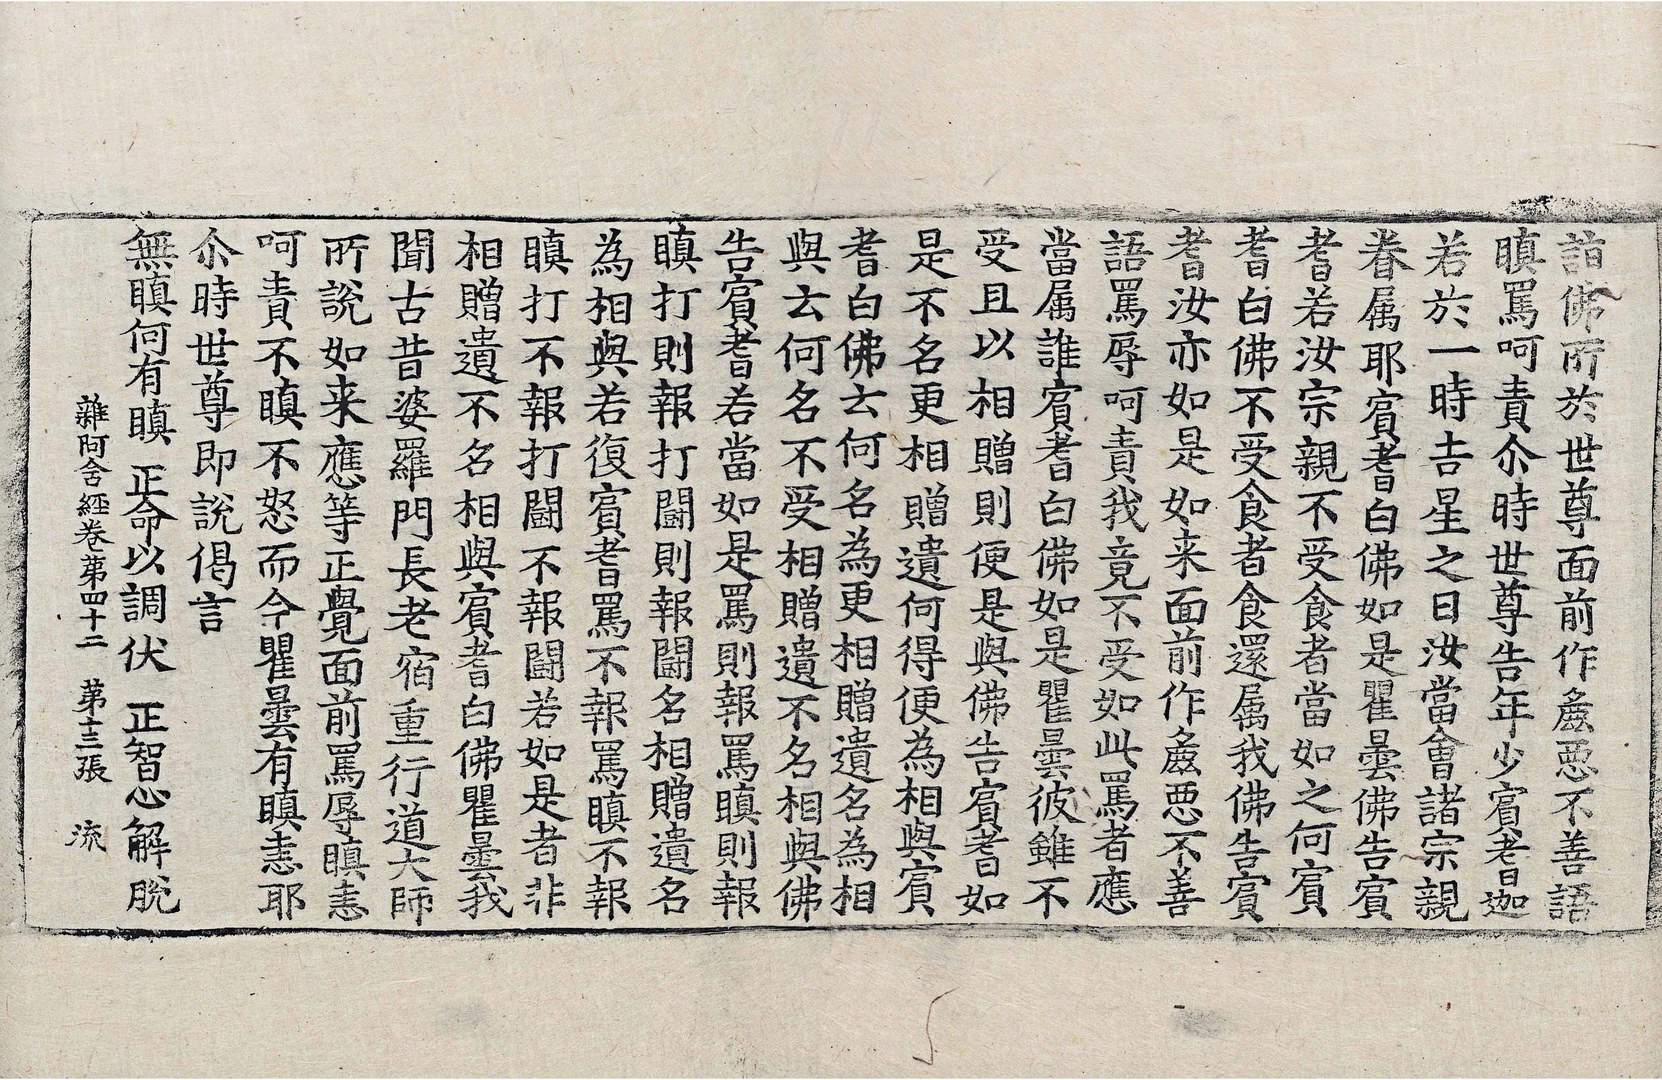 詣佛所於世尊面前作麁惡不善語
瞋罵呵責尒時世尊告年少賔耆迦
若於一時吉星之日汝當會諸宗親
眷属耶賔耆白佛如是瞿曇佛告賔
耆若汝宗親不受食者當如之何賔
耆白佛不受食者食還属我佛告賔
耆汝亦如是如来面前作麁惡不善
語罵辱呵責我竟不受如此罵者應
當属誰賔耆白佛如是瞿曇彼雖不
受且以相贈則便是與佛告賔耆如
是不名更相贈遺何得便為相與賔
耆白佛云何名為更相贈遺名為相
與云何名不受相贈遺不名相與佛
告賔耆若當如是罵則報罵瞋則報
瞋打則報打鬪則報鬪名相贈遺名
為相與若復賔耆罵不報罵瞋不報
瞋打不報打鬪不報鬪若如是者非
相贈遺不名相與賔耆白佛瞿曇我
聞古昔婆羅門長老宿重行道大師
所說如来應等正覺面前罵辱瞋恚
呵責不瞋不怒而今瞿曇有瞋恚耶
尒時世尊即說偈言
無瞋何有瞋 正命以調伏 正智心解脫
雜阿含經卷第四十二 第十三張 流